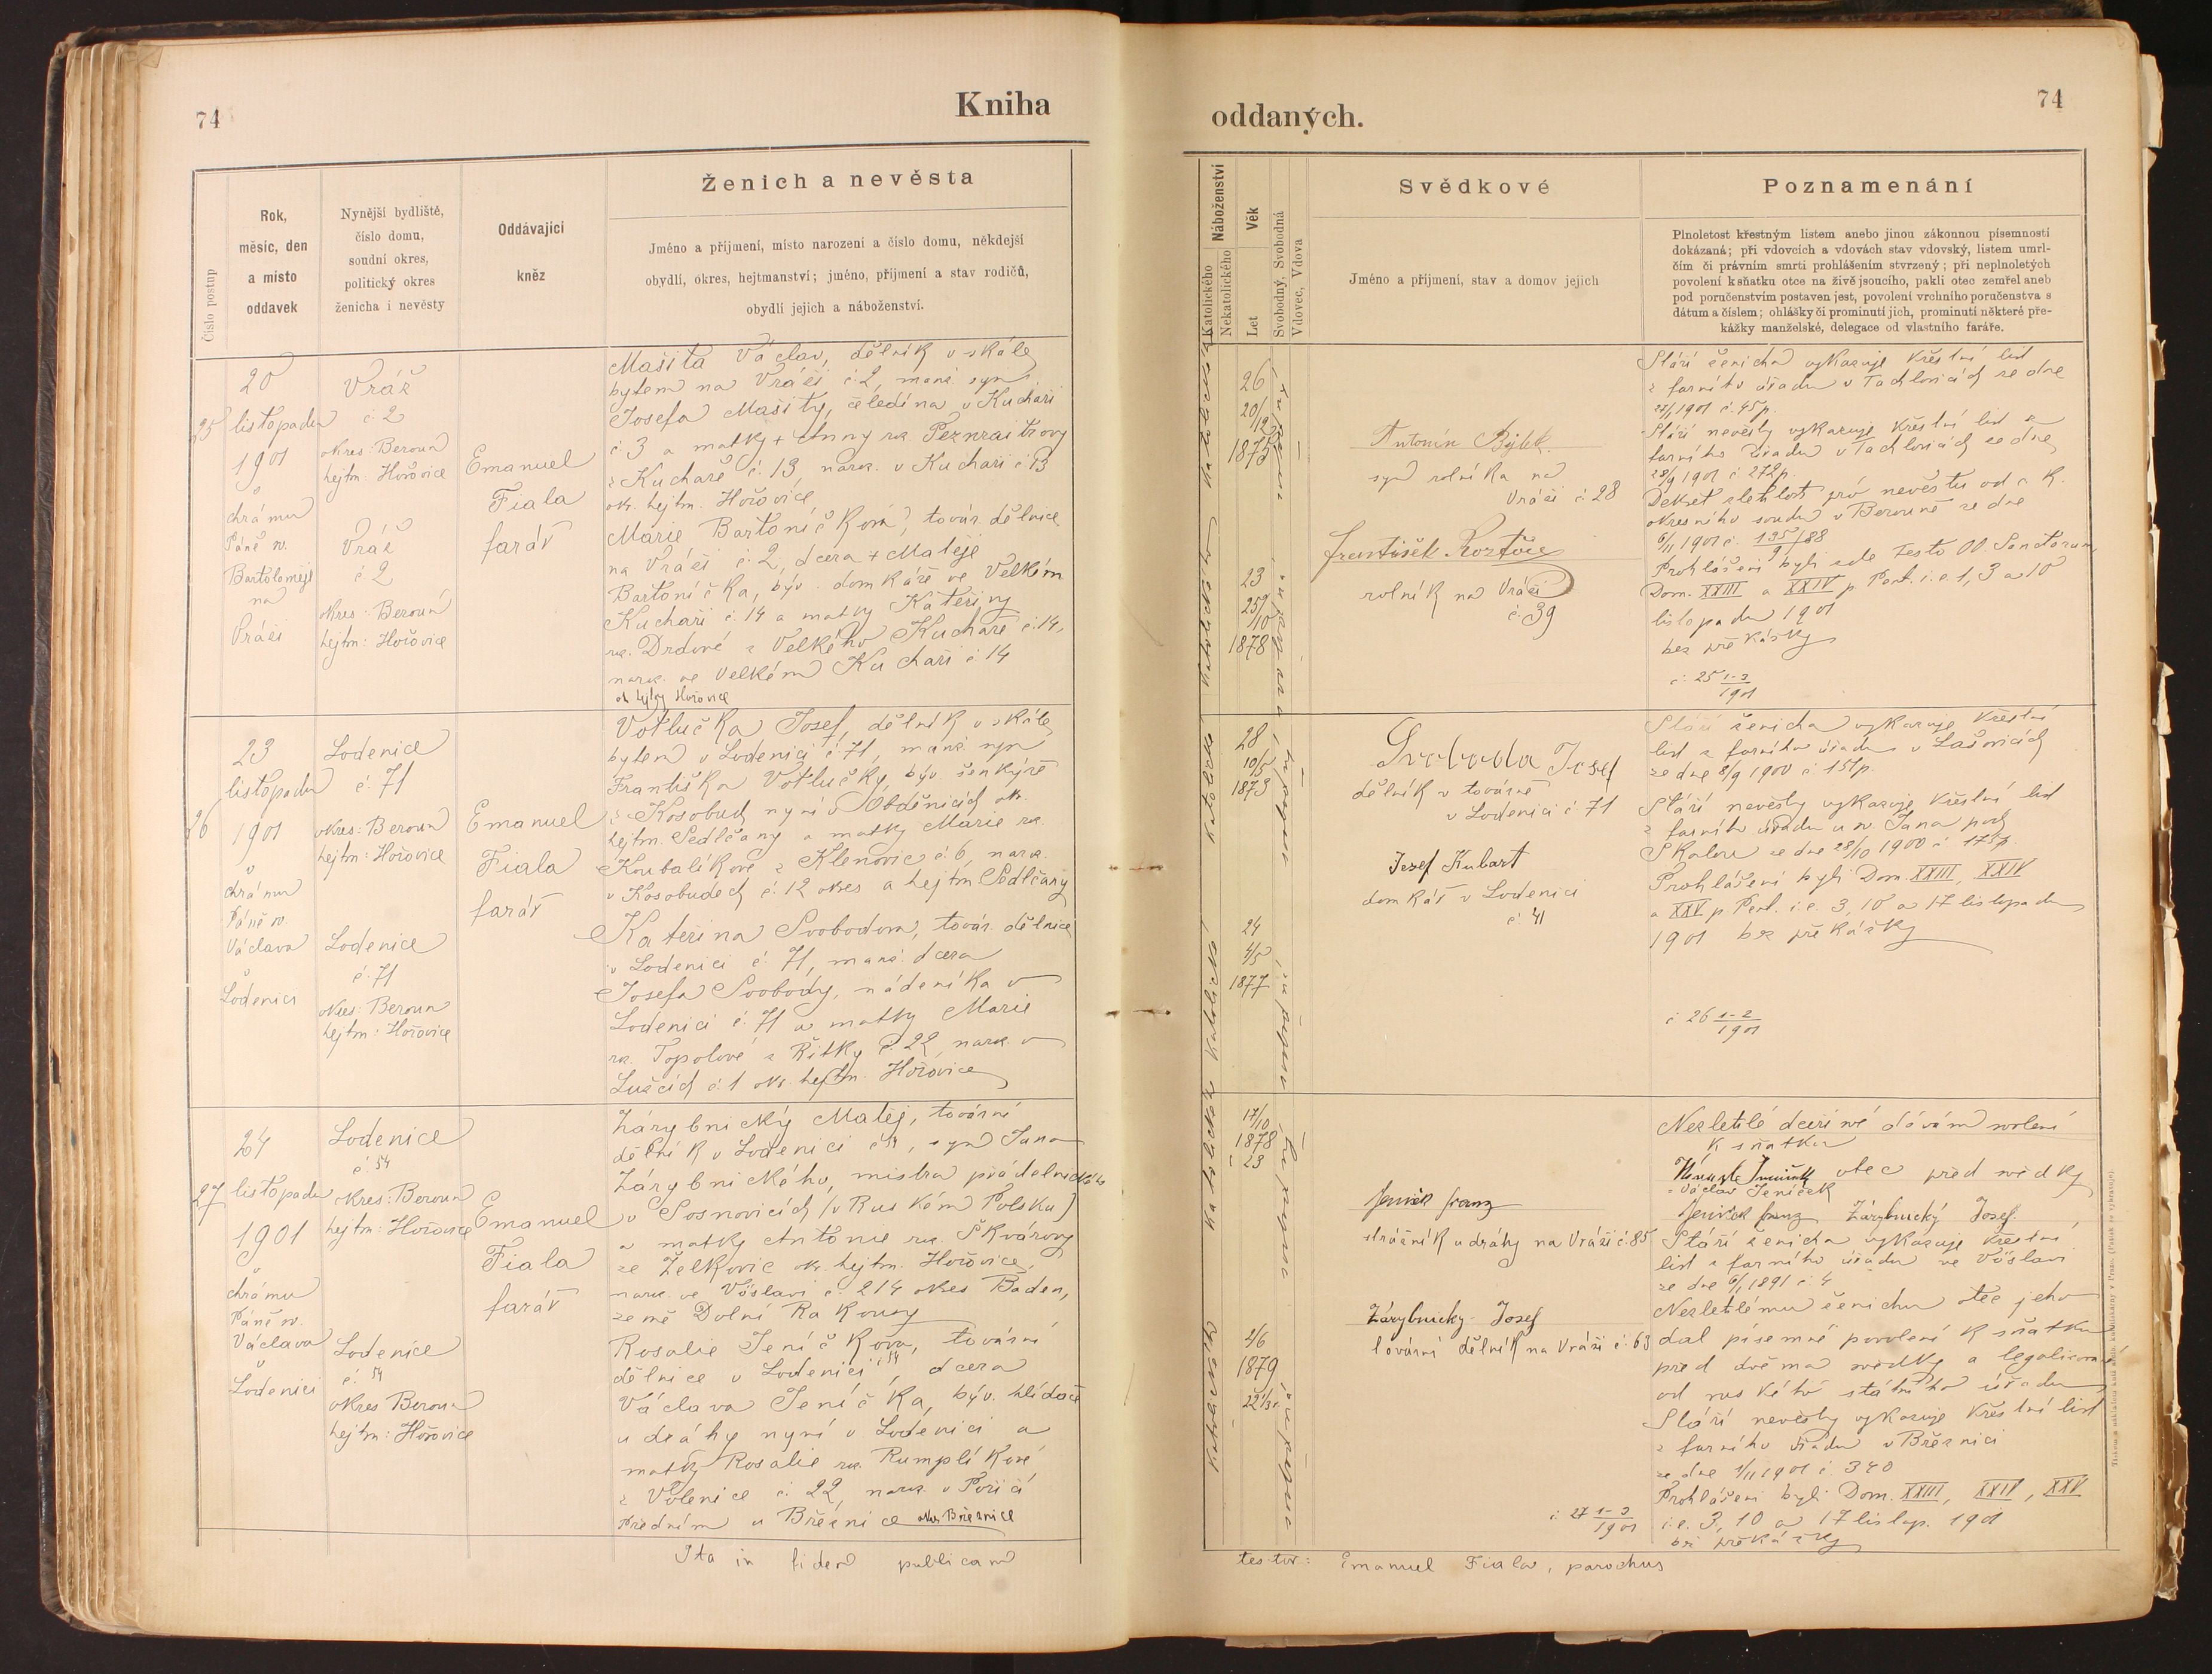 74
Kniha
Číslo postup
Rok,
měsíc, den
a místo
oddavek
Nynější bydliště,
číslo domu,
soudní okres,
politický okres
ženicha i nevěsty
Oddávající
kněz
Ženich a nevěsta
Jméno a příjmení, místo narození a číslo domu, někdejší
obydlí, okres, hejtmanství; jméno, příjmení a stav rodičů,
obydlí jejich a náboženství.
25
20
listopadu
1901
v
chrámu
Páně sv.
Bartoloměje
na
Vráži
Vráž
č 2
okres: Beroun
hejtm: Hořovice
Vráž
č 2
okres: Beroun
hejtm: Hořovice
Emanuel
Fiala
farář
Mašita Václav, dělník v skále
bytem na Vráži č. 2, manž. syn
Josefa Mašity, čeledína v Kuchaři
č 3 a matky + Anny roz.
z Kuchaře č. 13, naroz. v Kuchaři č 13
ok. hejtm. Hořovice
Marie Bartoníčková, továr. dělnice
na Vráži č. 2, dcera + Matěje
Bartoníčka, býv. domkáře ve Velkém
Kuchaři č. 14 a matky Kateřiny
roz. Drdové z Velkého Kuchaře č. 14,
naroz. ve Velkém Kuchaři č 14
ok hejtm Hořovice
26
23
listopadu
1901
v
chrámu
Páně sv.
Václava
v
Loděnici
Loděnice
č. 71
okres: Beroun
hejtm: Hořovice
Loděnice
č. 71
okres: Beroun
hejtm: Hořovice
Emanuel
Fiala
farář
Votlučka Josef, dělník v skále
bytem v Loděnici č. 71, manž. syn
Františka Votlučky, býv. šenkýře
z Kosobud nyní v Obděnicích ok.
hejtm. Sedlčany a matky Marie roz.
Koubalíkové z Klenovic č. 6, naroz.
v Kosobudech č. 12 okres a hejtm Sedlčany
Kateřina Svobodova, továr. dělnice
v Loděnici č. 71, manž. dcera
Josefa Svobody, nádeníka v
Loděnici č. 71 a matky Marie
roz. Topolové z Řitky č. 22, naroz. v
Lužcích č. 1 ok. hejtm. Hořovice
27
24
listopadu
1901
v
chrámu
Páně sv.
Václava
v
Loděnici
Loděnice
č. 54
okres: Beroun
hejtm: Hořovice
Loděnice
č. 54
okres Beroun
hejtm: Hořovice
Emanuel
Fiala
farář
Zárybnický Matěj, tovární
dělník v Loděnici č 54, syn Jana
Zárybnického, mistra prádelnického
v Sosnovicích (v Ruském Polsku)
a matky Antonie roz. Škvárovy
ze Želkovic ok. hejtm. Hořovice,
naroz. ve Vöslavi č. 214 okres Baden,
země Dolní Rakousy
Rosalie Jeníčkova, tovární
dělnice v Loděnici č 54, dcera
Václava Jeníčka, býv. hlídače
u dráhy nyní v Loděnici a
matky Rosalie roz. Rumplíkové
z Volenice č. 22, naroz. v Poříčí
Předním u Březnice okres Březnice
Ita in fidem publicam
oddaných.
74
Náboženství
Katolického
Nekatolického
Věk
Let
Svobodný, Svobodná
Vdovec, Vdova
Svědkové
Jméno a příjmení, stav a domov jejich
Poznamenání
Plnoletost křestným listem anebo jinou zákonnou písemností
dokázaná; při vdovcích a vdovách stav vdovský, listem umrl-
čím či právním smrti prohlášením stvrzený; při neplnoletých
povolení k sňatku otce na živě jsoucího, pakli otec zemřel aneb
pod poručenstvím postaven jest, povolení vrchního poručenstva s
dátum a číslem; ohlášky či prominutí jich, prominutí některé pře-
kážky manželské, delegace od vlastního faráře.
26
20/12
1875
23
25/10
1878
Antonín
syn rolníka na
Vráži č. 28
František Roztočil
rolník na Vráži
č. 39
Stáří ženicha vykazuje křestní list
z farního úřadu v Tachlovicích ze dne
1901 č. 45 p.
Stáří nevěsty vykazuje křestní list z
farního úřadu v Tachlovicích ze dne
28/9 1901 č 272 p.
Dekret zletilosti pro nevěstu od c. k.
okresního soudu v Berouně ze dne
6/11 1901 č. 195/88
9
Prohlášeni byli zde Festo OO. Sanctorum,
Dom. XXIII a XXIV p Pent. i. e. 1, 3 a 10
listopadu 1901
bez překážky
č. 25 1-3
1901
28
10/5
1873
24
4/5
1877
Svoboda Josef
dělník v továrně
v Loděnici č. 71
Josef Kubart
domkář v Loděnici
č 41
Stáří ženicha vykazuje křestní
list z farního úřadu v
ze dne 8/9 1900 č 151 p.
Stáří nevěsty vykazuje křestní list
z farního úřadu u sv. Jana pod
Skalou ze dne 28/10 1900 č 175 p.
Prohlášeni byli Dom. XXIII, XXIV
a XXV p Pent. i. e. 3, 10 a 17 listopadu
1901 bez překážky
č 26 1-2
1901
17/10
1878
23
4/6
1879
Jeniček Franz
strážník u dráhy na Vráži č. 85
Zárybnický Josef
tovární dělník na Vráži č. 63
č. 27 1-3
1901
Nezletilé dceři své dávám svolení
k sňatku
otec před svědky
= Václav Jeníček
Jeniček Franz Zárybnický Josef.
Stáří ženicha vykazuje křestní
list z farního úřadu ve Vöslavi
ze dne 6/1 1891 č. 4
Nezletilému ženichu otec jeho
dal písemné povolení k sňatku
před dvěma svědky a legalisované
od ruského státního úřadu
Stáří nevěsty vykazuje křestní list
z farního úřadu v Březnici
ze dne 1/11 1901 č. 340
Prohlášeni byli Dom. XXIII, XXIV, XXV
i. e. 3, 10 a 17 listop. 1901
bez překážky
testor: Emanuel Fiala, parochus